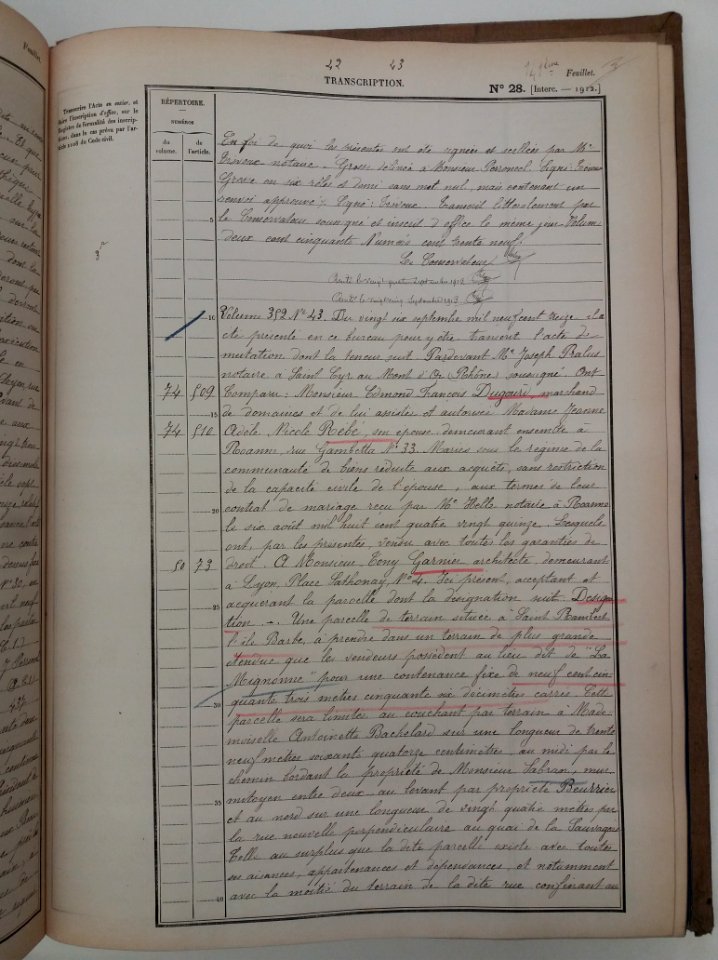 42 43
Feuillet.
TRANSCRIPTION.
N° 28. [Interc. — 1912.]
Transcrire l'Acte en entier, et
faire l'inscription d'office, sur le
Registre de formalité des inscrip-
tions, dans le cas prévu par l'ar-
ticle 2108 du Code civil.
RÉPERTOIRE.
NUMÉROS
du volume.
de l'article.
En foi de quoi les présentes ont été signées et scellées par Me
notaire. Grosse délivrée à Monsieur Signé:
Grosse en six rôles et demi sans mot nul, mais contenant un
renvoi approuvé. Signé: Transcrit littéralement par
5 le Conservateur soussigné et inscrit d'office le même jour Volume
deux cent cinquante Numéro cent trente neuf.
Le Conservateur
Arrêté le vingt quatre septembre 1913
Arrêté le vingt cinq septembre 1913
10 Volume 352 N° 43. Du vingt six septembre mil neuf cent treize. A
été présenté en ce bureau pour y être transcrit l'acte de
mutation dont la teneur suit. Pardevant Me Joseph Pralus
notaire à Saint Cyr au Mont d'Or (Rhône) soussigné. Ont
74 509 Comparu: Monsieur Edmond François Dugourd, marchand
15 de domaines et de lui assistée et autorisée Madame Jeanne
74 510 Adèle Nicole Rebé, son épouse demeurant ensemble à
Roanne, rue Gambetta N° 33. Mariés sous le régime de la
communauté de biens réduite aux acquêts, sans restriction
de la capacité civile de l'épouse, aux termes de leur
20 contrat de mariage reçu par Me Hello notaire à Roanne
le six août mil huit cent quatre vingt quinze. Lesquels
ont, par les présentes, vendu avec toutes les garanties de
50 73 droit. A Monsieur Tony Garnier architecte demeurant
à Lyon, Place Sathonay, N° 4. Ici présent, acceptant et
25 acquérant la parcelle dont la désignation suit. Désigna
tion -. Une parcelle de terrain située à Saint Rambert
l'île Barbe, à prendre dans un terrain de plus grande
étendue que les vendeurs possèdent au lieu dit de "La
Mignonne" pour une contenance fixe de neuf cent cin
30 quante trois mètres cinquante six décimètres carrés. Cette
parcelle sera limitée au couchant par terrain à Made
moiselle Antoinette Bachelard sur une longueur de trente
neuf mètres soixante quatorze centimètres, au midi par le
chemin bordant la propriété de Monsieur Sabran, mur
35 mitoyen entre deux, au levant par propriété Beurrier
et au nord sur une longueur de vingt quatre mètres par
la rue nouvelle perpendiculaire au quai de la Sauvagère
Telle au surplus que la dite parcelle existe avec toutes
ses aisances, appartenances et dépendances, et notamment
40 avec la moitié du terrain de la dite rue confinant au